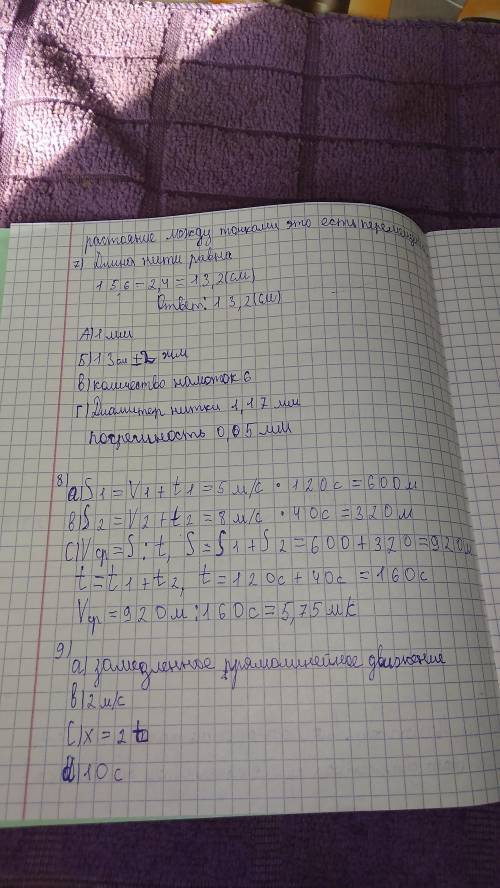 растояние между точками это есть перемещен
7) Длина нити равна
15,6 - 2,4 = 13,2 (см)
Ответ: 13,2 (см)
А) 1 мм
Б) 13 см ± 2 мм
в) количество намоток 6
Г) Диаметр нитки 1,17 мм
погрешность 0,05 мм
8)
a) S1 = V1 + t1 = 5 м/с · 120с = 600м
в) S2 = V2 + t2 = 8 м/с · 40с = 320м
C) Vср = S : t, S = S1 + S2 = 600 + 320 = 920м
t = t1 + t2, t = 120с + 40с = 160с
Vср = 920м : 160с = 5,75 м/с
9)
a) замедленное прямолинейное движение
в) 2 м/с
C) x = 2t
d) 10с